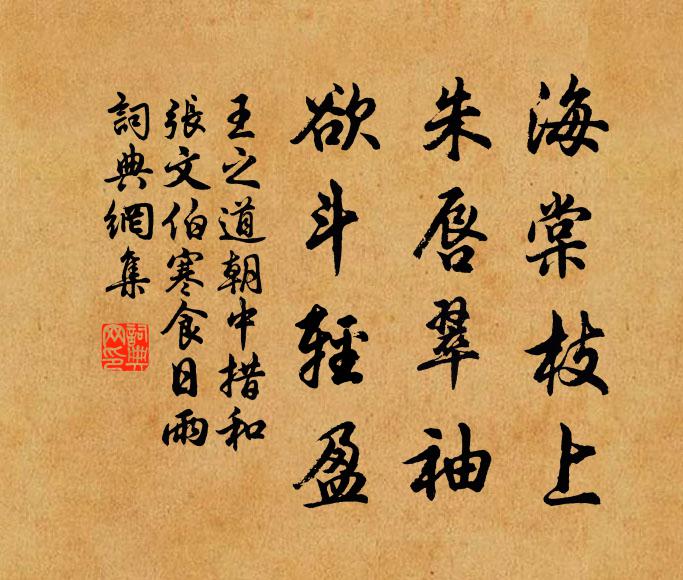 海棠枝上
朱唇翠袖
欲斗輕盈
王之道朝中措和
張文伯寒食日雨
詞典網集
詞典
網印